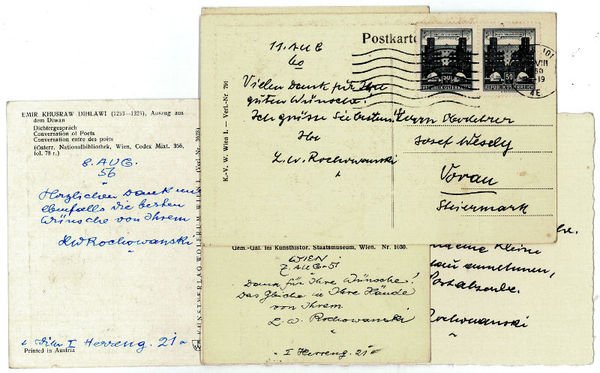 EMIR KHUSRAW DIHLAWI (1253—1325), Auszug aus
dem Diwan
Dichtergespräch
Conversation of Poets
Conversation entre des poets
(Österr. Nationalbibliothek, Wien, Codex Mixt. 356,
fol. 78 r.)
8. AUG.
56
Herzlichen Dank und
ebenfalls die besten
Wünsche von Ihrem
LW Rochowanski
Wien I Herreng. 21
Printed in Austria
K.-V. W. Wien I. – Verl.-Nr. 791
Postkarte
11. AUG
60
Vielen Dank für Ihre
guten Wünsche.
Ich grüsse Sie bestens
Ihr
L. W. Rochowanski
Herrn Oberlehrer
Josef Wesely
Vorau
Steiermark
Gem.-Gal. im Kunsthistor. Staatsmuseum, Wien. Nr. 1030.
WIEN
7. AUG. 51
Dank für Ihre Wünsche!
Das Gleiche in Ihre Hände
von Ihrem
L. W. Rochowanski
I Herreng. 21
eine kleine
anzunehmen,